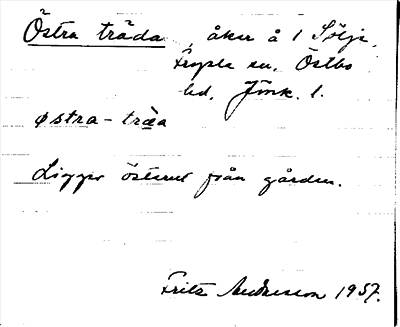 Östra träda, åker å 1 Sölje,
Fryele sn. Östbo
hd. Jönk. l.
østra-träa
Ligger österut från gården.
Fritz Andersson 1937.